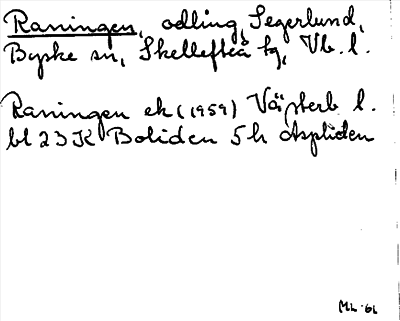 Raningen, odling, Segerlund,
Byske sn, Skellefteå tg, Vb. l.
Raningen ek (1959) Västerb l.
bl 23 K Boliden 5 h Aspliden
ML -61